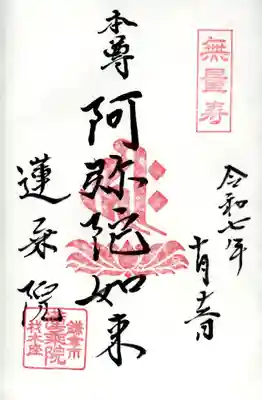 無量寿
令和七年
十月
本尊
阿弥陀如来
蓮乗院
鎌倉市
蓮乗院
材木座